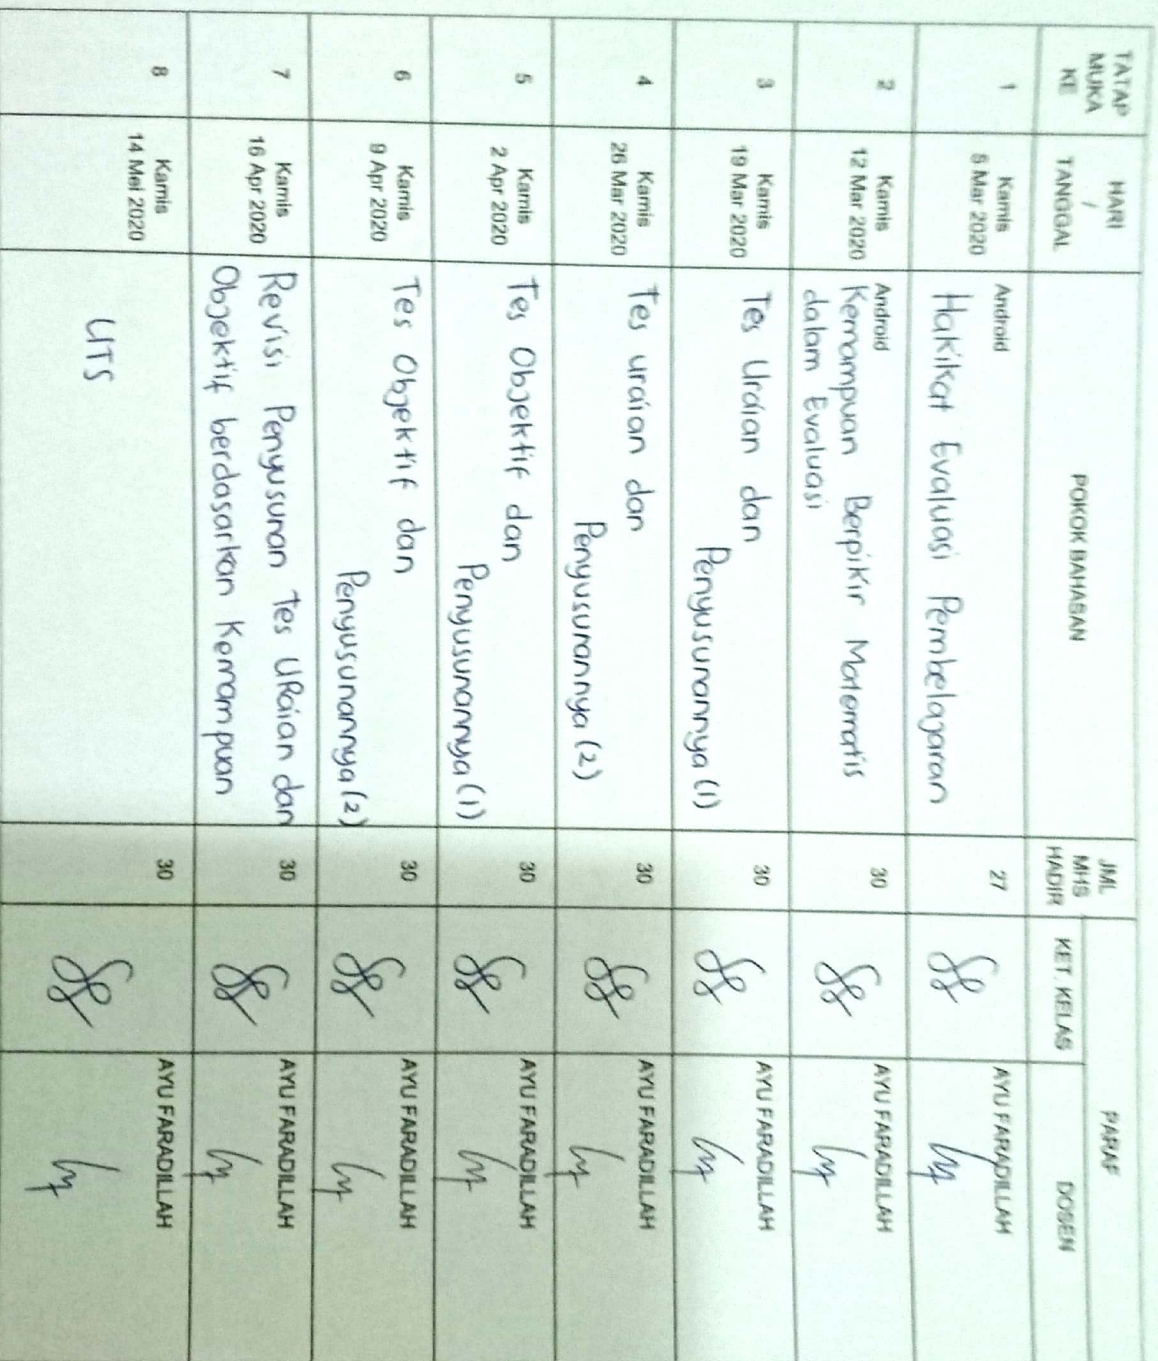 TATAP MUKA KE
HARI / TANGGAL
POKOK BAHASAN
JML MHS HADIR
PARAF
KET. KELAS
DOSEN
1
Kamis
5 Mar 2020
Android
Hakikat Evaluasi Pembelajaran
27
AYU FARADILLAH
2
Kamis
12 Mar 2020
Android
Kemampuan Berpikir Matematis
dalam Evaluasi
30
AYU FARADILLAH
3
Kamis
19 Mar 2020
Tes Uraian dan
Penyusunannya (1)
30
AYU FARADILLAH
4
Kamis
26 Mar 2020
Tes uraian dan
Penyusunannya (2)
30
AYU FARADILLAH
5
Kamis
2 Apr 2020
Tes Objektif dan
Penyusunannya (1)
30
AYU FARADILLAH
6
Kamis
9 Apr 2020
Tes Objektif dan
Penyusunannya (2)
30
AYU FARADILLAH
7
Kamis
16 Apr 2020
Revisi Penyusunan Tes Uraian dan
Objektif berdasarkan Kemampuan
30
AYU FARADILLAH
8
Kamis
14 Mei 2020
UTS
30
AYU FARADILLAH